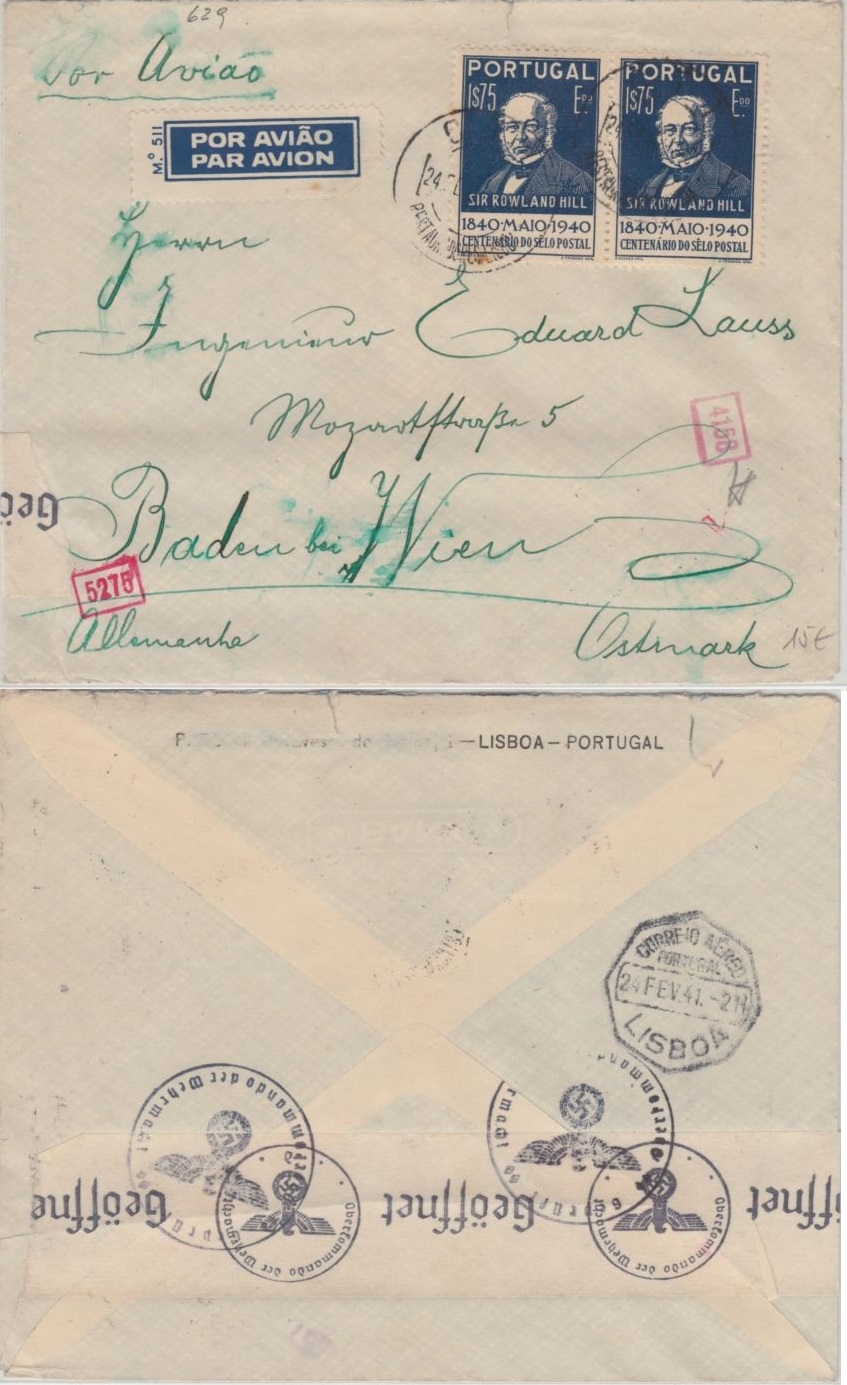 629.
Por Avião
M.º 511
POR AVIÃO
PAR AVION
PORTUGAL
1$75 E.
SIR ROWLAND HILL
1840·MAIO·1940
CENTENÁRIO DO SÊLO POSTAL
PORTUGAL
1$75 E.DO
SIR ROWLAND HILL
1840·MAIO·1940
CENTENÁRIO DO SÊLO POSTAL
24
Herrn
Ingenieur Eduard Lauss
Mozartstraße 5
4158
Baden bei Wien
Geö
5275
Allemanha
Ostmark
15€
LISBOA – PORTUGAL
CORREIO AEREO
PORTUGAL
24 FEV. 41. - 2 H
LISBOA
Oberkommando der Wehrmacht
Oberkommando der Wehrmacht
Geöffnet
Geöffnet
Geöffnet
ffnet
Oberkommando der Wehrmacht
Oberkommando der Wehrmacht